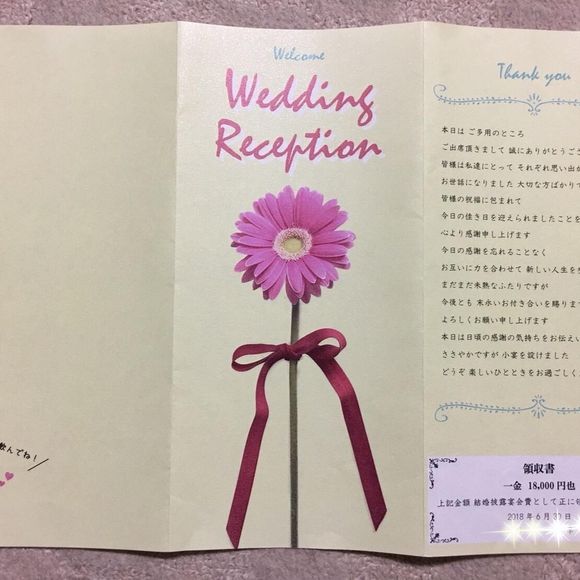 Welcome
Wedding
Reception
飲んでね!
Thank you
本日は ご多用のところ
ご出席頂きまして 誠にありがとうござ
皆様は私達にとって それぞれ思い出が
お世話になりました 大切な方ばかりで
皆様の祝福に包まれて
今日の佳き日を迎えられましたことを
心より感謝申し上げます
今日の感謝を忘れることなく
お互いに力を合わせて 新しい人生を
まだまだ未熟なふたりですが
今後とも 末永いお付き合いを賜りま
よろしくお願い申し上げます
本日は日頃の感謝の気持ちをお伝えい
ささやかですが 小宴を設けました
どうぞ 楽しいひとときをお過ごしく
領収書
一金 18,000円也
上記金額 結婚披露宴会費として正に
2018年6月30日